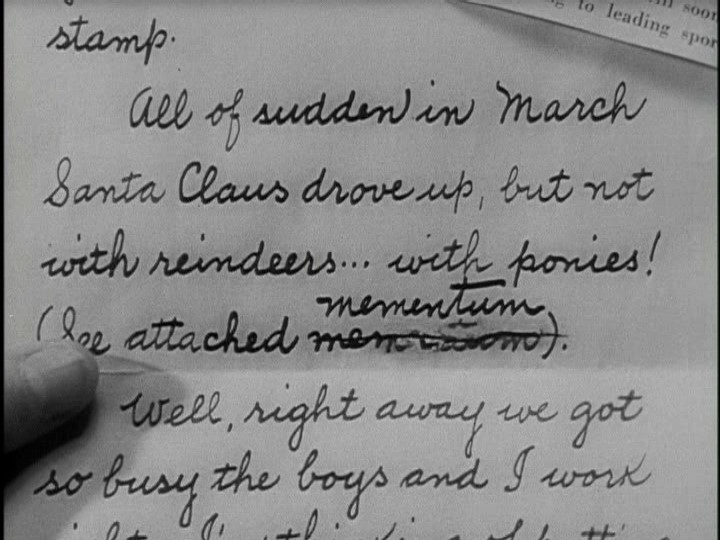 soon
to leading spor
stamp.
All of sudden in March
Santa Claus drove up, but not
with reindeers... with ponies!
mementum
(See attached).
Well, right away we got
so busy the boys and I work